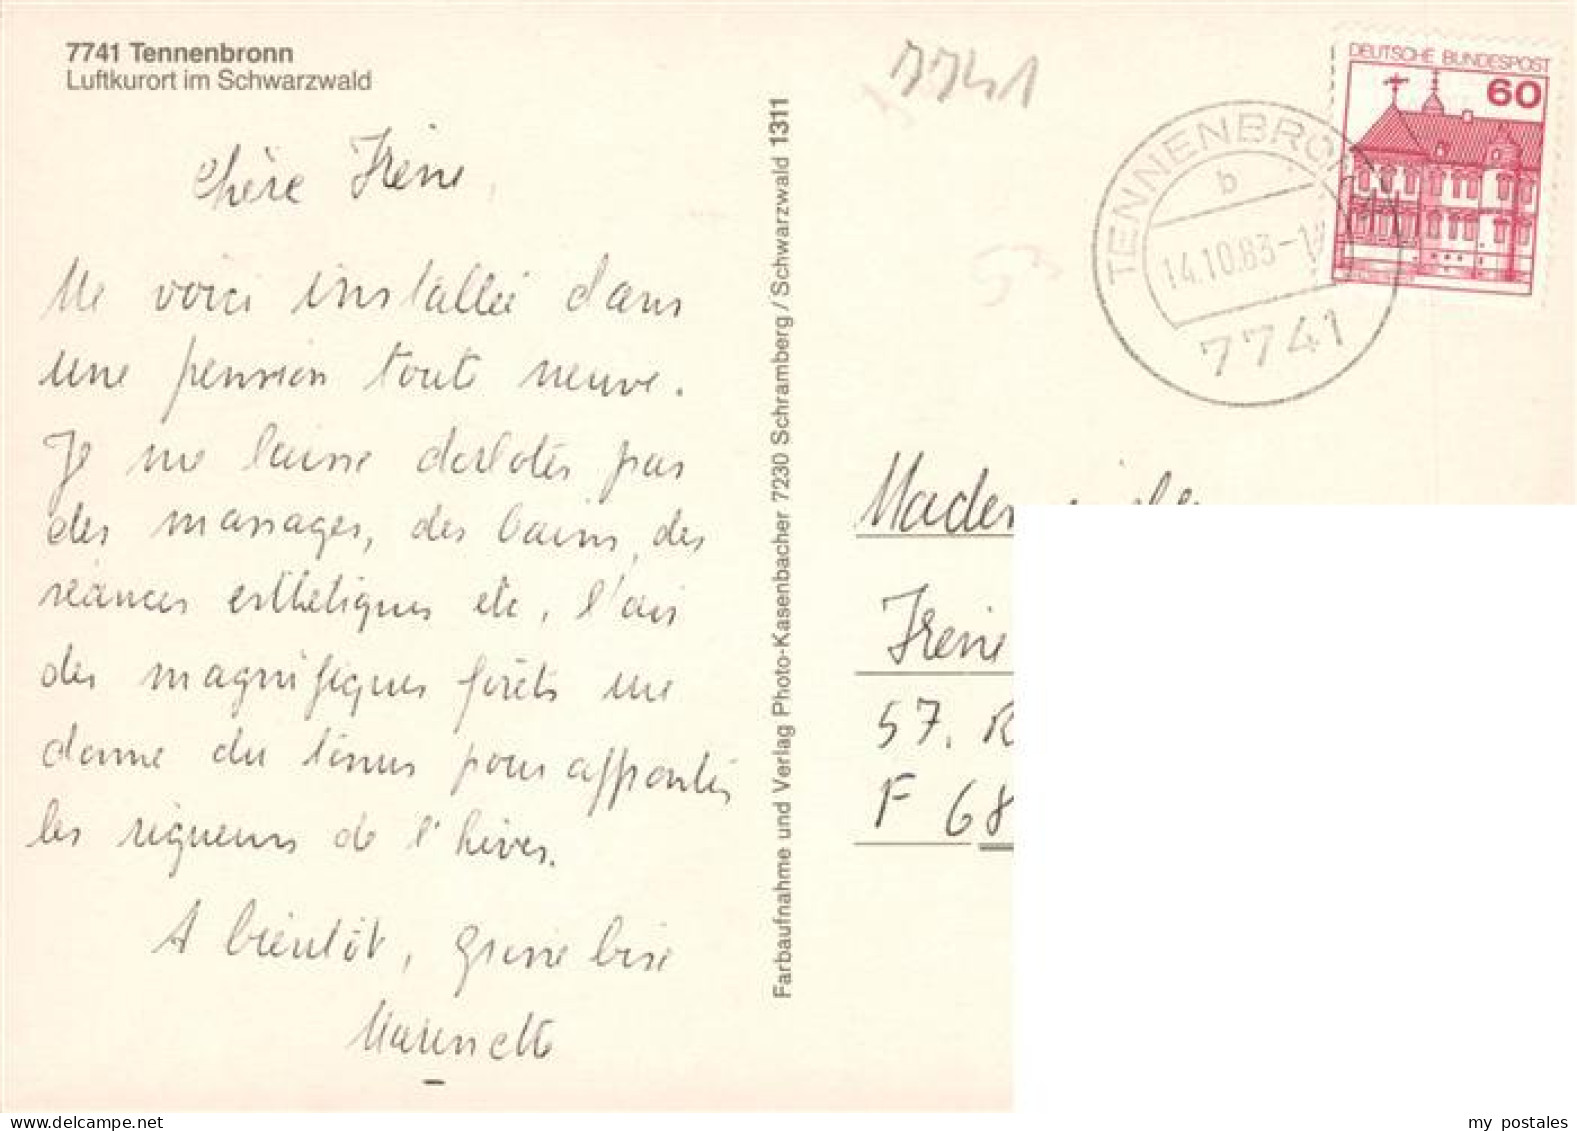 7741 Tennenbronn
Luftkurort im Schwarzwald
Chère Irène,
Me voici installée dans
une pension toute neuve.
Je me laisse dorloter par
des massages, des bains, des
séances esthétiques etc, l'air
des magnifiques forêts me
donne du tonus pour affronter
les rigueurs de l'hiver.
A bientôt, grosse bise
Farbaufnahme und Verlag Photo-Kasenbacher 7230 Schramberg/Schwarzwald 1311
7741
DEUTSCHE BUNDESPOST
60
TENNENBRO
b
14.10.83-1
7741
Irène
57, R
F 68
www.delcampe.net
my postales